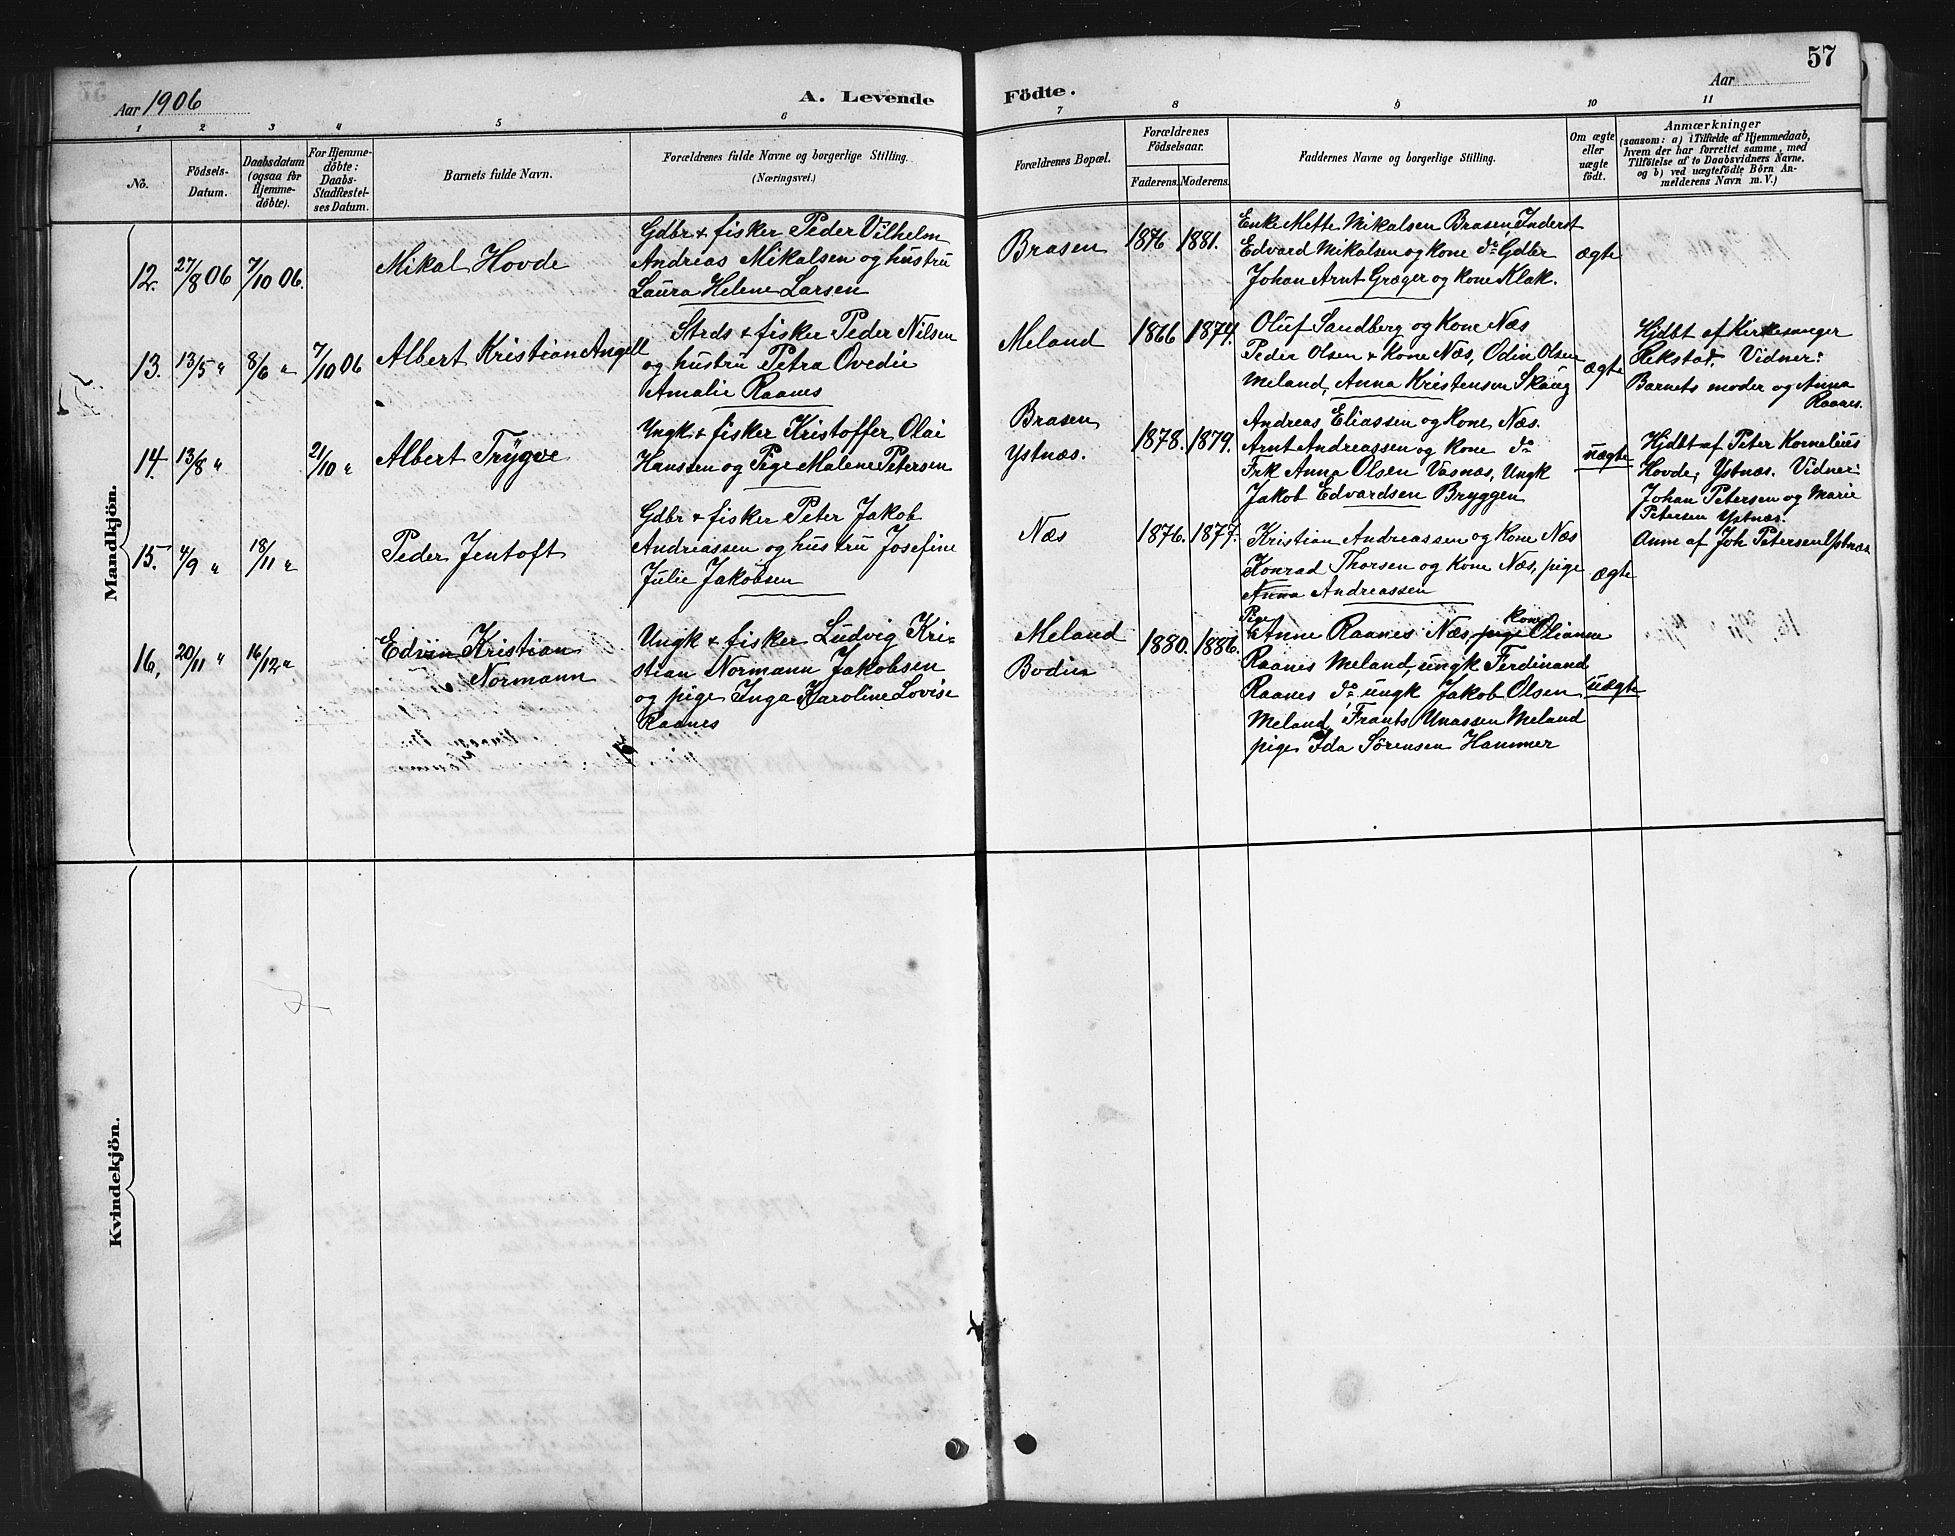 57
Aar 1906
A. Levende Födte.
Aar
1 2 3 4 5 6 7 8 9 10 11
No.
Födsels-Datum.
Daabsdatum (ogsaa for Hjemme-döbte).
For Hjemme-döbte: Daabs-Stadfæstel-ses Datum.
Barnets fulde Navn.
Forældrenes fulde Navne og borgerlige Stilling. (Næringsvei.)
Forældrenes Bopæl.
Forældrenes Födselsaar.
Faderens. Moderens.
Faddernes Navne og borgerlige Stilling.
Om ægte eller uægte födt.
Anmærkninger
(saasom: a) i Tilfælde af Hjemmedaab,
hvem der har forrettet samme, med
Tilföielse af to Daabsvidners Navne.
og b) ved uægtefödte Börn An-
melderens Navn m. V.)
Mandkjön.
12. 27/8 06 7/10 06. Mikal Hovde
Gdbr & fisker Peder Vilhelm
Andreas Mikalsen og hustru
Laura Helene Larsen
Brasen 1876 1881.
Enke Mette Mikalsen Brasen, Inderst
Edvard Mikalsen og kone do Gdbr
Johan Arnt Græger og kone Klak.
ægte
13. 13/5 " 8/6 " 7/10 06 Albert Kristian Angell
Strds & fisker Peder Nilsen
og hustru Petra Ovedie
Amalie Raanes
Meland 1866 1874.
Oluf Sandberg og Kone Næs
Peder Olsen & Kone Næs, Odin Olsen
Meland, Anna Kristensen Skaug
ægte
Hjdbt af Kirkesanger
Rekstad. Vidner:
Barnets moder og Anna
Raanes.
14. 13/8 " 21/10 " Albert Trygve
Ungk & fisker Kristoffer Olai
Hanssen og Pige Malene Petersen
Brasen
Ystnæs. 1878. 1879.
Andreas Eliassen og kone Næs.
Arnt Andreassen og kone do
Frk Anna Olsen Vasnæs, Ungk
Jakob Edvardsen Bryggen
uægte
Hjdbt af Peter Kornelius
Hovde, Ystnæs. Vidner:
Johan Petersen og Marie
Petersen Ystnæs.
Anm af Joh Petersen Ystnæs
15. 4/9 " 18/11 " Peder Jentoft
Gdbr & fisker Peter Jakob
Andreassen og hustru Josefine
Julie Jakobsen
Næs 1876. 1877.
Kristian Andreassen og kone Næs
Konrad Thorsen og kone Næs, pige
Anna Andreassen
ægte
16. 20/11 " 16/12 " Edvin Kristian
Normann
Ungk & fisker Ludvig Kri-
stian Normann Jakobsen
og pige Inga Karoline Lovise
Raanes
Meland
Bodin 1880. 1886.
Pige kone
Anne Raanes Næs, pige Olianne
Raanes Meland, ungk Ferdinand
Raanes do ungk Jakob Olsen
Meland, Frants Unassen Meland
pige Ida Sørensen Hammer
uægte
Kvindekjön.